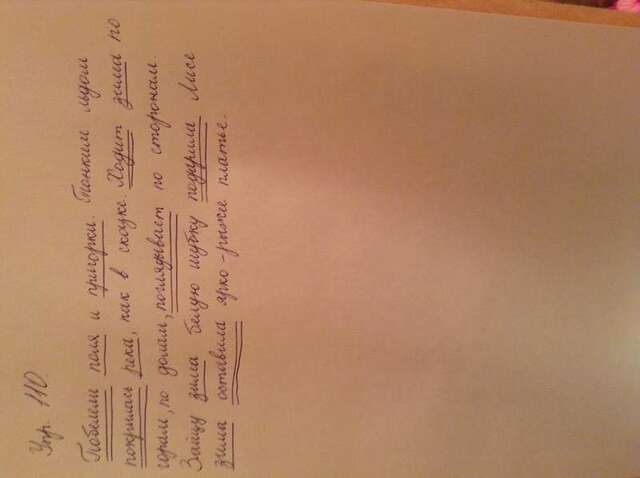 Упр. 110.
Побелели поля и пригорки. Тонким льдом
покрылась река, как в сказке. Ходит зима по
горам, по долам, поглядывает по сторонам.
Зайцу зима белую шубку подарила Лисе
зима оставила ярко-рыжее платье.